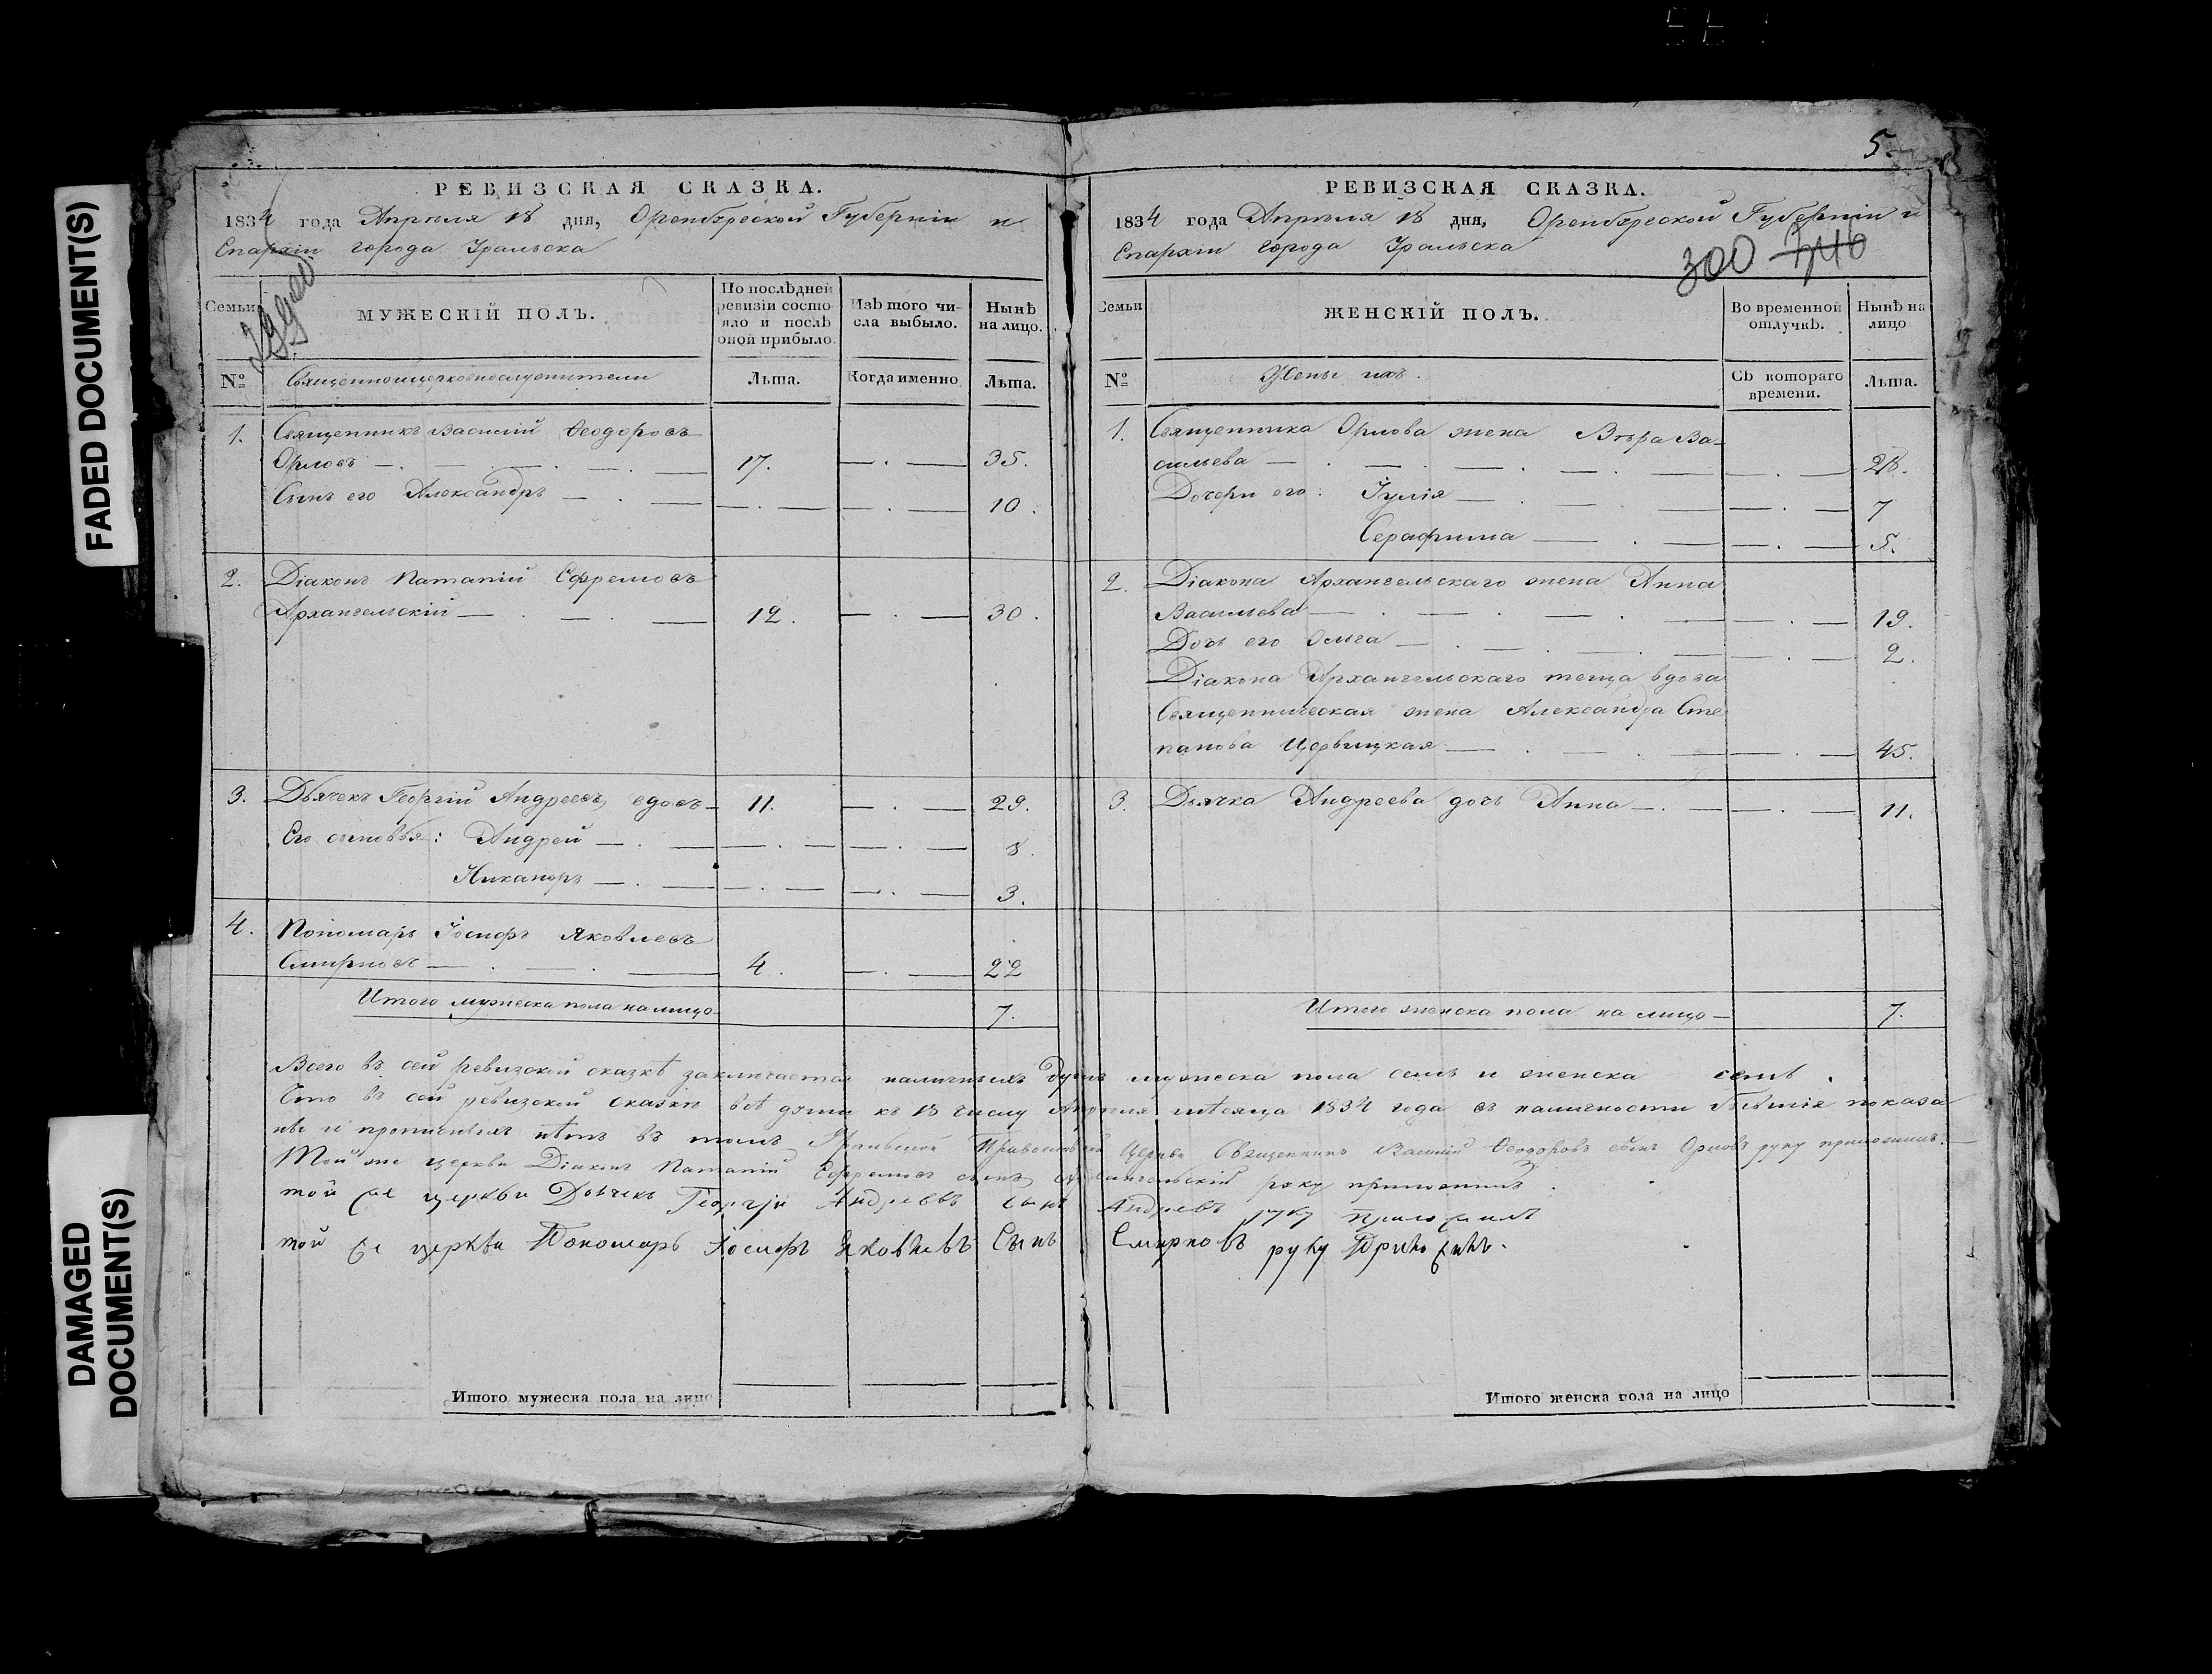 FADED DOCUMENT(S)
DAMAGED
DOCUMENT(S)
РЕВИЗСКАЯ СКАЗКА.
1834 года Апрѣля 18 дня, Оренбургской Губерніи и
Епархіи города Уральска
Семьи
МУЖЕСКІЙ ПОЛЪ.
По послѣдней
ревизіи состо-
яло и послѣ
оной прибыло.
Изъ того чи-
сла выбыло.
Нынѣ
на лицо.
№
Священноицерковнослужители
Лѣта.
Когда именно
Лѣта.
1. Священникъ Василій Ѳеодоровъ
Орловъ — 17. — 35.
Сынъ его Александръ — 10.
2. Діаконъ Ипатій Ефремовъ
Архангельскій — 12. — 30.
3. Дьячекъ Георгій Андреевъ, вдовъ — 11. — 29.
Его сыновья: Андрей — 8.
Никаноръ — 3.
4. Пономарь Іосифъ Яковлевъ
Смирновъ — 4. — 22
Итого мужеска пола на лицо 7.
5.
РЕВИЗСКАЯ СКАЗКА.
1834 года Апрѣля 18 дня, Оренбургской Губерніи и
Епархіи города Уральска
300
Семьи
ЖЕНСКІЙ ПОЛЪ.
Во временной
отлучкѣ.
Нынѣ на
лицо
№
Жены ихъ.
Съ котораго
времени.
Лѣта.
1. Священника Орлова жена Вѣра Ва-
сильева — 28.
Дочери его: Іулія — 7
Серафима — 5.
2. Діакона Архангельскаго жена Анна
Васильева — 19.
Дочь его Ольга — 2.
Діакона Архангельскаго теща вдова
Священническая жена Александра Сте
панова — 45.
3. Дьячка Андреева дочь Анна — 11.
Итого женска пола на лицо — 7.
Всего въ сей ревизской сказкѣ заключается наличныхъ душъ мужеска пола семь и женска семь.
Что въ сей ревизской сказкѣ всѣ души къ 18 числу Апрѣля мѣсяца 1834 года въ наличности бывшія показа
ны и прописныхъ нѣтъ въ томъ Уральской Православной Церкви Священникъ Василій Ѳеодоровъ сынъ Орловъ руку приложилъ.
Той же церкви Діаконъ Ипатій Ефремовъ сынъ Архангельскій руку приложилъ.
той же церкви Дьячекъ Георгій Андреевъ сынъ Андреевъ руку приложилъ
той же церкви Пономарь Іосифъ Яковлевъ Сынъ Смирновъ руку Приложилъ.
Итого мужеска пола на лицо
Итого женска пола на лицо